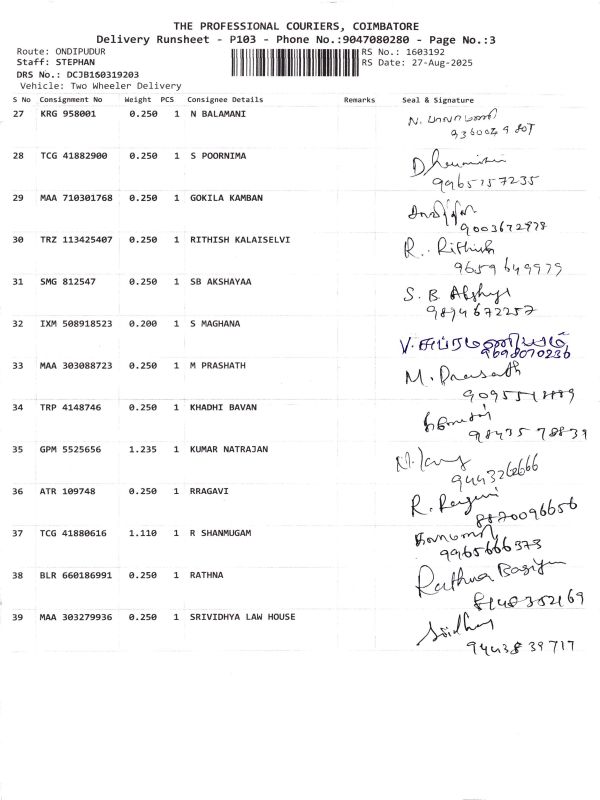 THE PROFESSIONAL COURIERS, COIMBATORE
Delivery Runsheet - P103 - Phone No.:9047080280 - Page No.:3
Route: ONDIPUDUR
RS No.: 1603192
Staff: STEPHAN
RS Date: 27-Aug-2025
DRS No.: DCJB160319203
Vehicle: Two Wheeler Delivery
S No Consignment No Weight PCS Consignee Details Remarks Seal & Signature
27 KRG 958001 0.250 1 N BALAMANI
N. பாலாமணி
28 TCG 41882900 0.250 1 S POORNIMA
9965157235
29 MAA 710301768 0.250 1 GOKILA KAMBAN
9003672978
30 TRZ 113425407 0.250 1 RITHISH KALAISELVI
R. Rithish
9659649979
31 SMG 812547 0.250 1 SB AKSHAYAA
S. B Akshya
9894672257
32 IXM 508918523 0.200 1 S MAGHANA
V. சுப்ரமணியம்
9698070236
33 MAA 303088723 0.250 1 M PRASHATH
M. Prasath
34 TRP 4148746 0.250 1 KHADHI BAVAN
98435 78839
35 GPM 5525656 1.235 1 KUMAR NATRAJAN
9443266666
36 ATR 109748 0.250 1 RRAGAVI
R. Ragavi
8870096656
37 TCG 41880616 1.110 1 R SHANMUGAM
9965666373
38 BLR 660186991 0.250 1 RATHNA
Rathna
8148352169
39 MAA 303279936 0.250 1 SRIVIDHYA LAW HOUSE
9443839717